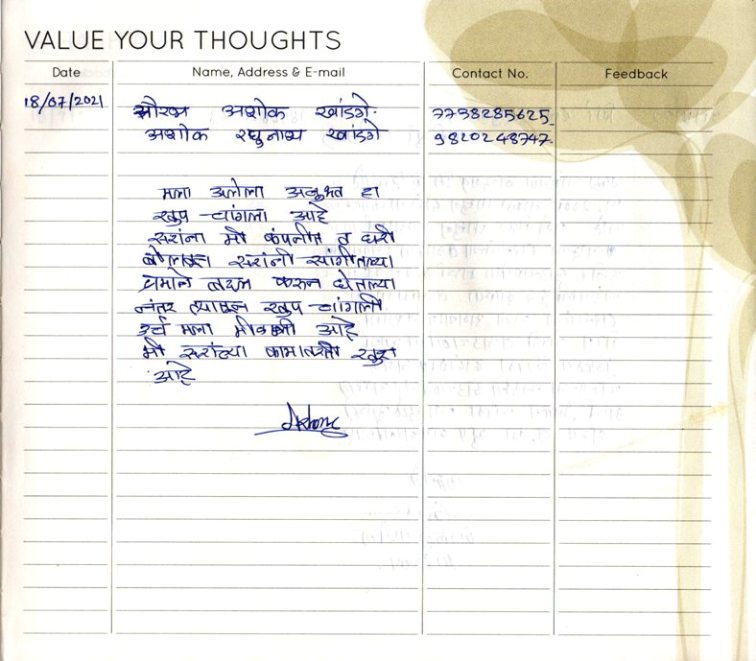 VALUE YOUR THOUGHTS
Date Name, Address & E-mail Contact No. Feedback
18/07/2021 सौरभ अशोक खांडगे. 7798285625
अशोक रघुनाथ खांडगे 9820248747
मला आलेला अनुभव हा
खुप चांगला आहे
सरांना मी कंपनीत व घरी
बोलवून सरांनी सांगीतल्या
प्रमाणे करून घेतल्या
नंतर त्यातून खुप चांगली
मला मीळाली आहे
मी सरांच्या कामावरती खुश
आहे